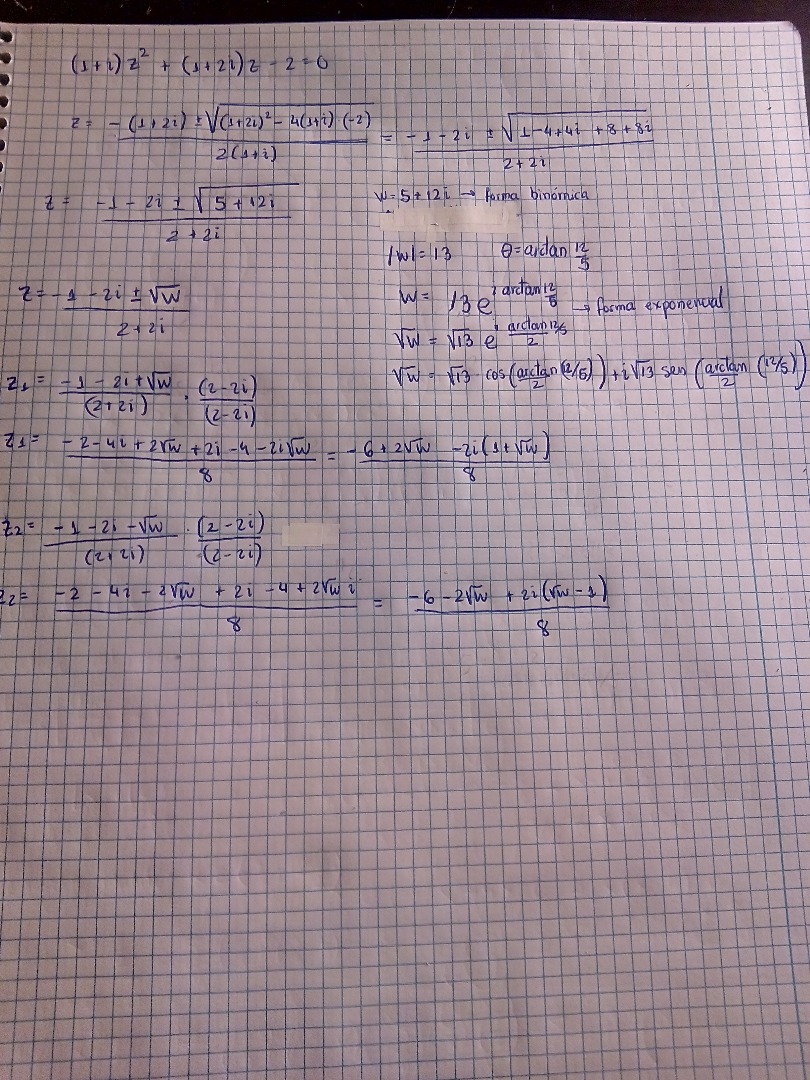 (1+i)z² + (1+2i)z - 2 = 0
z = -(1+2i) ± √((1+2i)² - 4(1+i)·(-2)) / 2(1+i) = -1 - 2i ± √(1-4+4i+8+8i) / 2+2i
z = -1 - 2i ± √(5+12i) / 2+2i
w = 5+12i → forma binómica
|w| = 13 θ = arctan 12/5
z = -1 - 2i ± √w / 2+2i
w = 13 e^(i arctan 12/5) → forma exponencial
√w = √13 e^(i arctan 12/5 / 2)
√w = √13 cos(arctan/2 (12/5)) + i√13 sen(arctan/2 (12/5))
z1 = -1 - 2i + √w / (2+2i) · (2-2i) / (2-2i)
z1 = -2 - 4i + 2√w + 2i - 4 - 2i√w / 8 = -6 + 2√w - 2i(1+√w) / 8
z2 = -1 - 2i - √w / (2+2i) · (2-2i) / (2-2i)
z2 = -2 - 4i - 2√w + 2i - 4 + 2√w i / 8 = -6 - 2√w + 2i(√w - 1) / 8